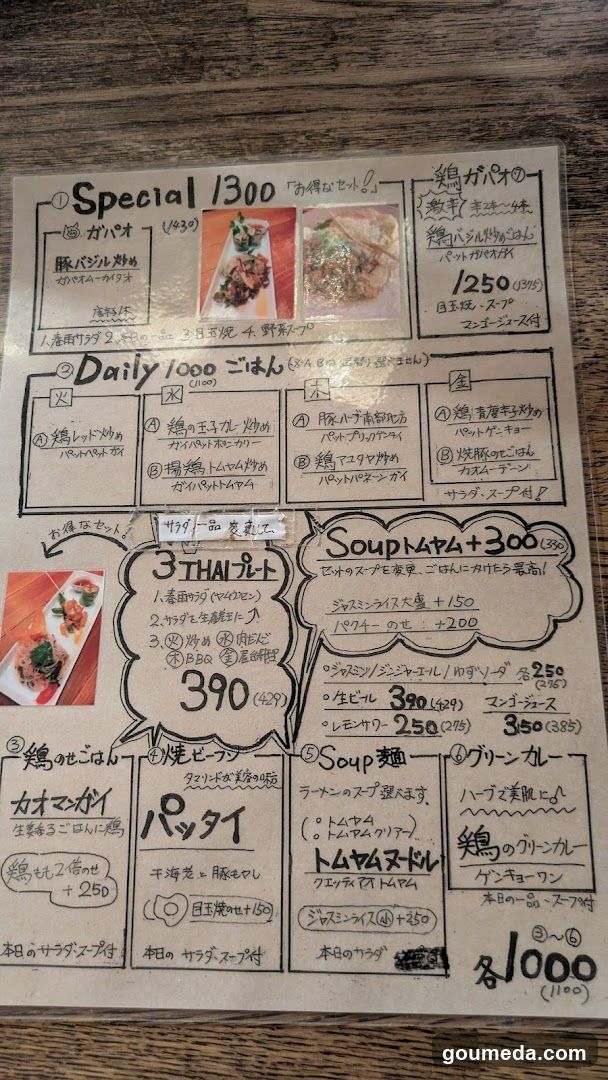 ① Special 1300 「お得なセット!」
(1430)
ガパオ
豚バジル炒め
ガパオムーカイダオ
1.春雨サラダ 2.本日の一品 3.目玉焼 4.野菜スープ
鶏ガパオ⑦
激辛!
鶏バジル炒めごはん
パットガパオガイ
1250 (1375)
目玉焼・スープ
マンゴージュース付
② Daily 1000 ごはん
(1100)
火
Ⓐ 鶏レッド炒め
パットペットガイ
水
Ⓐ 鶏の玉子カレー炒め
ガイパットポンカリー
Ⓑ 揚鶏トムヤム炒め
ガイパットトムヤム
木
Ⓐ 豚ハーブ南部地方
パットプリックゲンタイ
Ⓑ 鶏アユタヤ炒め
パットパネーンガイ
金
Ⓐ 鶏青唐辛子炒め
パットゲーンキョー
Ⓑ 焼豚のせごはん
カオムーデーン
サラダ、スープ付!
お得なセット!
サラダ、一品 変更して、
3 THAIプレート
1.春雨サラダ(ヤムウンセン)
2.サラダを生春巻に
3.㊋炒め ㊌肉だんご
㊍BBQ ㊎
390 (429)
Soupトムヤム+300 (330)
セットのスープを変更、ごはんにかけたら最高!
ジャスミンライス大盛 +150
パクチーのせ : +200
○ジャスミン/ジンジャーエール/ゆずソーダ 各250
(275)
○生ビール 390 (429) マンゴージュース
○レモンサワー 250 (275) 350 (385)
③ 鶏のせごはん
カオマンガイ
生姜香るごはんに鶏
鶏もも2倍のせ
+250
本日のサラダ・スープ付
④ 焼ビーフン
タマリンドが美容の味方
パッタイ
干海老と豚もやし
目玉焼のせ+150
本日の サラダ、スープ付
⑤ Soup麺
ラーメンのスープ選べます。
○トムヤム
○トムヤムクリアー
トムヤムヌードル
クエッティアオトムヤム
ジャスミンライス㊙小 +250
本日のサラダ
⑥ グリーンカレー
ハーブで美肌に♪
鶏のグリーンカレー
ゲンキョーワン
本日の一品・スープ付
③〜⑥
各1000
(1100)
goumeda.com